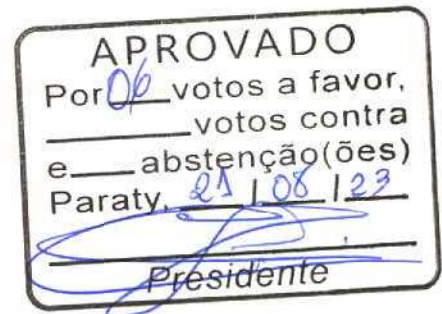 APROVADO
Por 06 votos a favor,
votos contra
e abstenção(ões)
Paraty, 21 / 08 / 23
Presidente